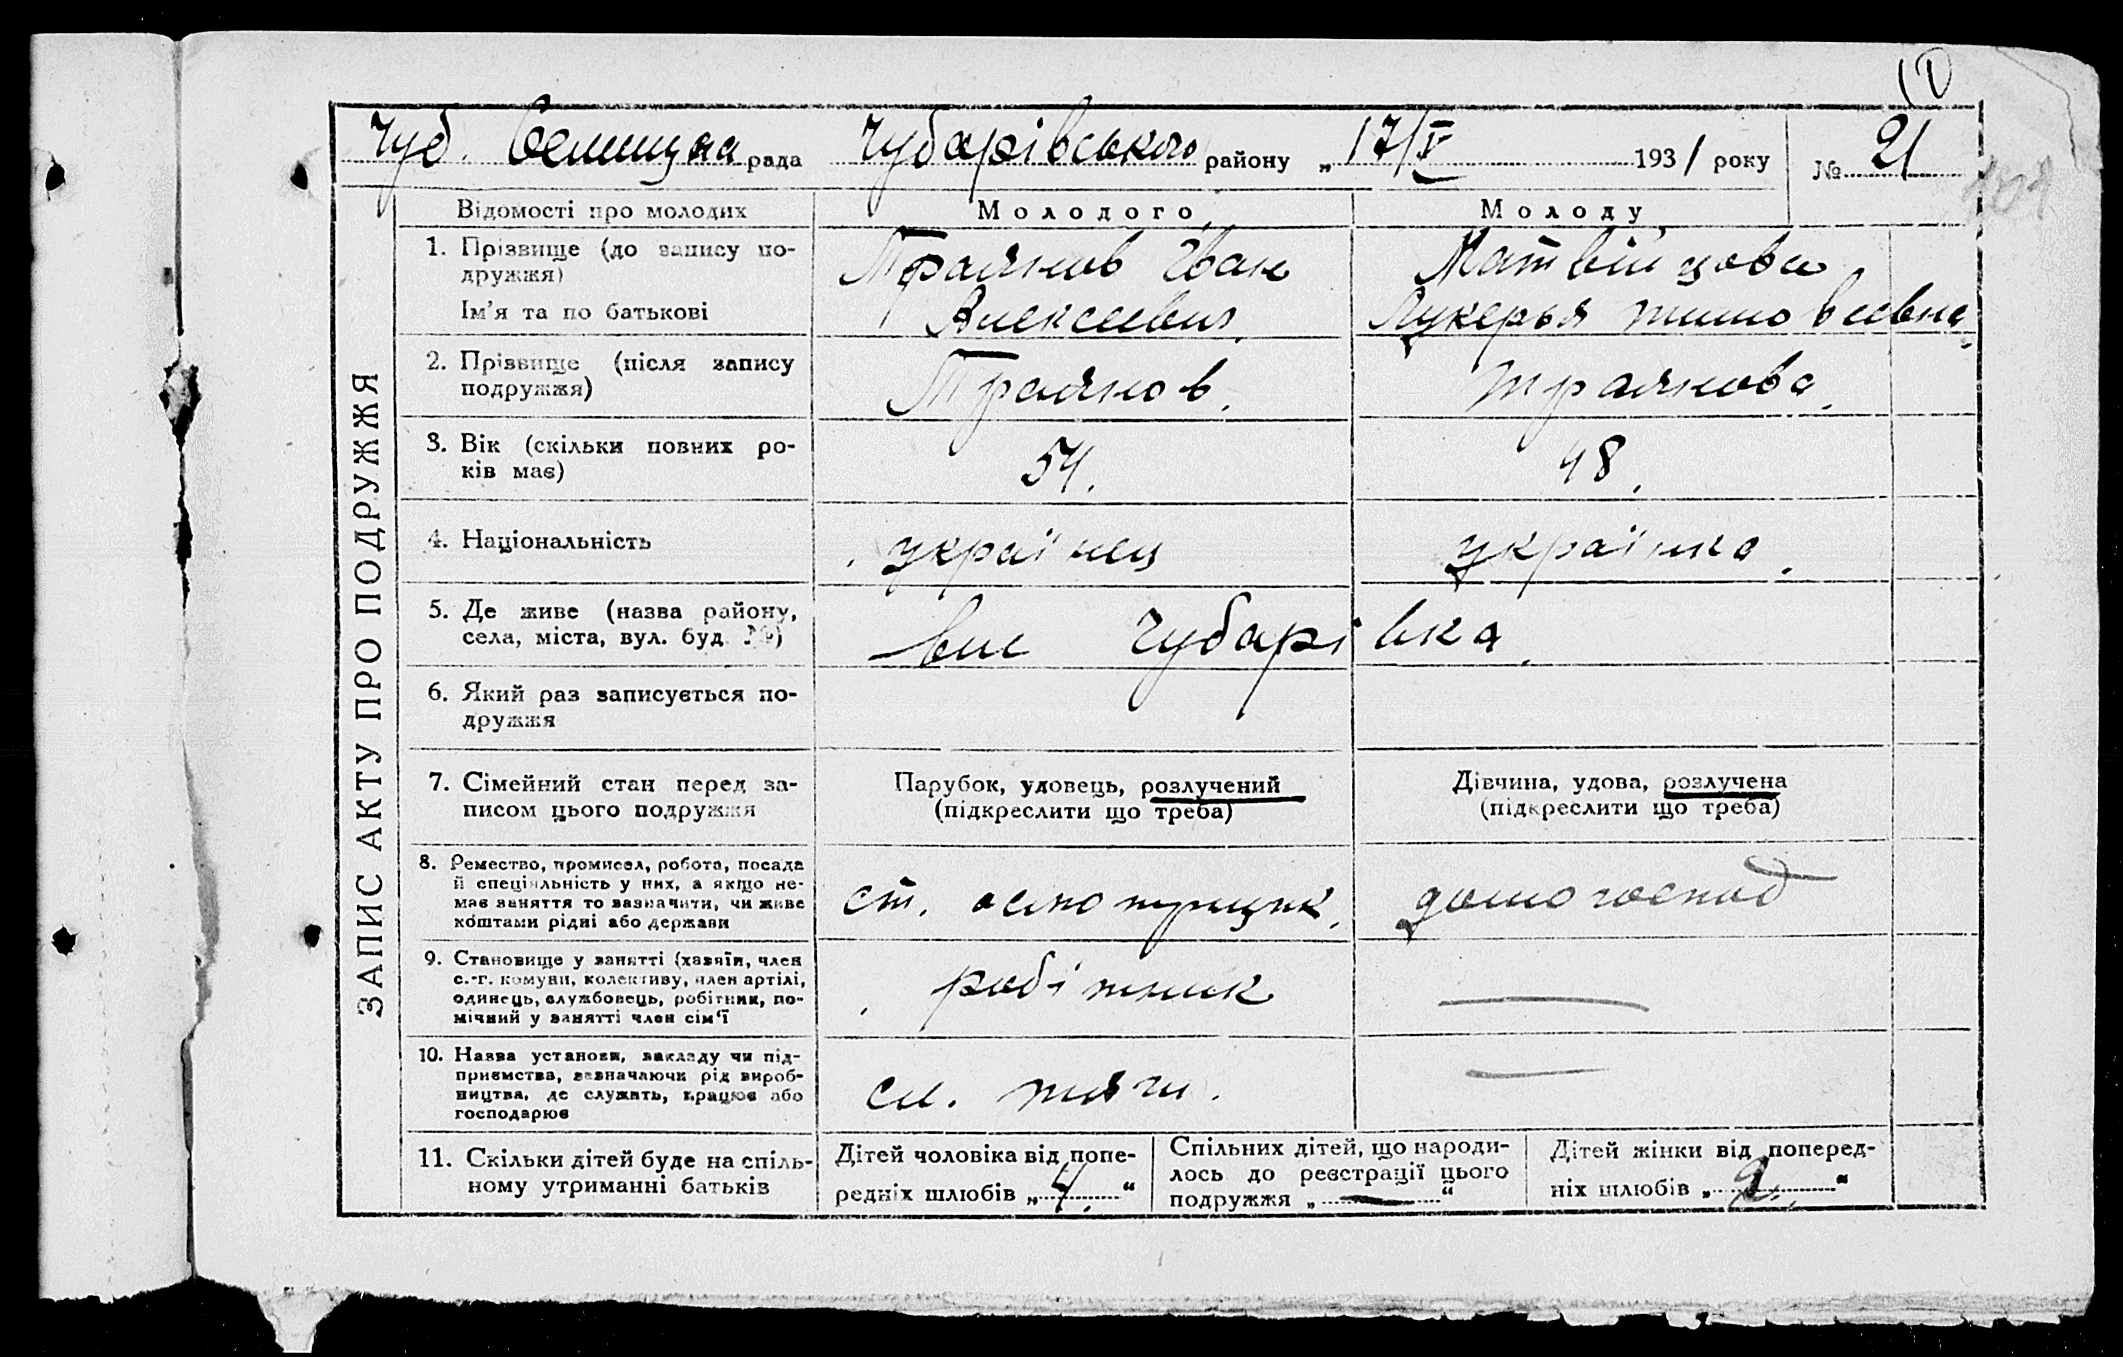 Чуб. Селищна рада Чубарівського району „ 17/V 1931 року № 21
ЗАПИС АКТУ ПРО ПОДРУЖЖЯ
Відомості про молодих Молодого Молоду
1. Прізвище (до запису по-
дружжя)
Ім'я та по батькові
Іван
Алексеевич
Лукерья
2. Прізвище (після запису
подружжя)
3. Вік (скільки повних ро-
ків має)
54. 48.
4. Національність
українец українка.
5. Де живе (назва району,
села, міста, вул. буд. №)
Чубарівка.
6. Який раз записується по-
дружжя
7. Сімейний стан перед за-
писом цього подружжя
Парубок, удовець, розлучений
(підкреслити що треба)
Дівчина, удова, розлучена
(підкреслити що треба)
8. Ремество, промисел, робота, посада
й спеціяльність у них, а якщо не-
має заняття то зазначити, чи живе
коштами рідні або держави
ст. домогоспод
9. Становище у занятті (хазяїн, член
с.-г. комуни, колективу, член артілі,
одинець, службовець, робітник, по-
мічний у занятті член сім'ї
робітник —
10. Назва установи, закладу чи під-
приємства, зазначаючи рід вироб-
ництва, де служить, працює або
господарює
сл. тяги. —
11. Скільки дітей буде на спіль-
ному утриманні батьків
Дітей чоловіка від попе-
редніх шлюбів „ 4. “
Спільних дітей, що народи-
лось до реєстрації цього
подружжя „ — “
Дітей жінки від поперед-
ніх шлюбів „ 2. “